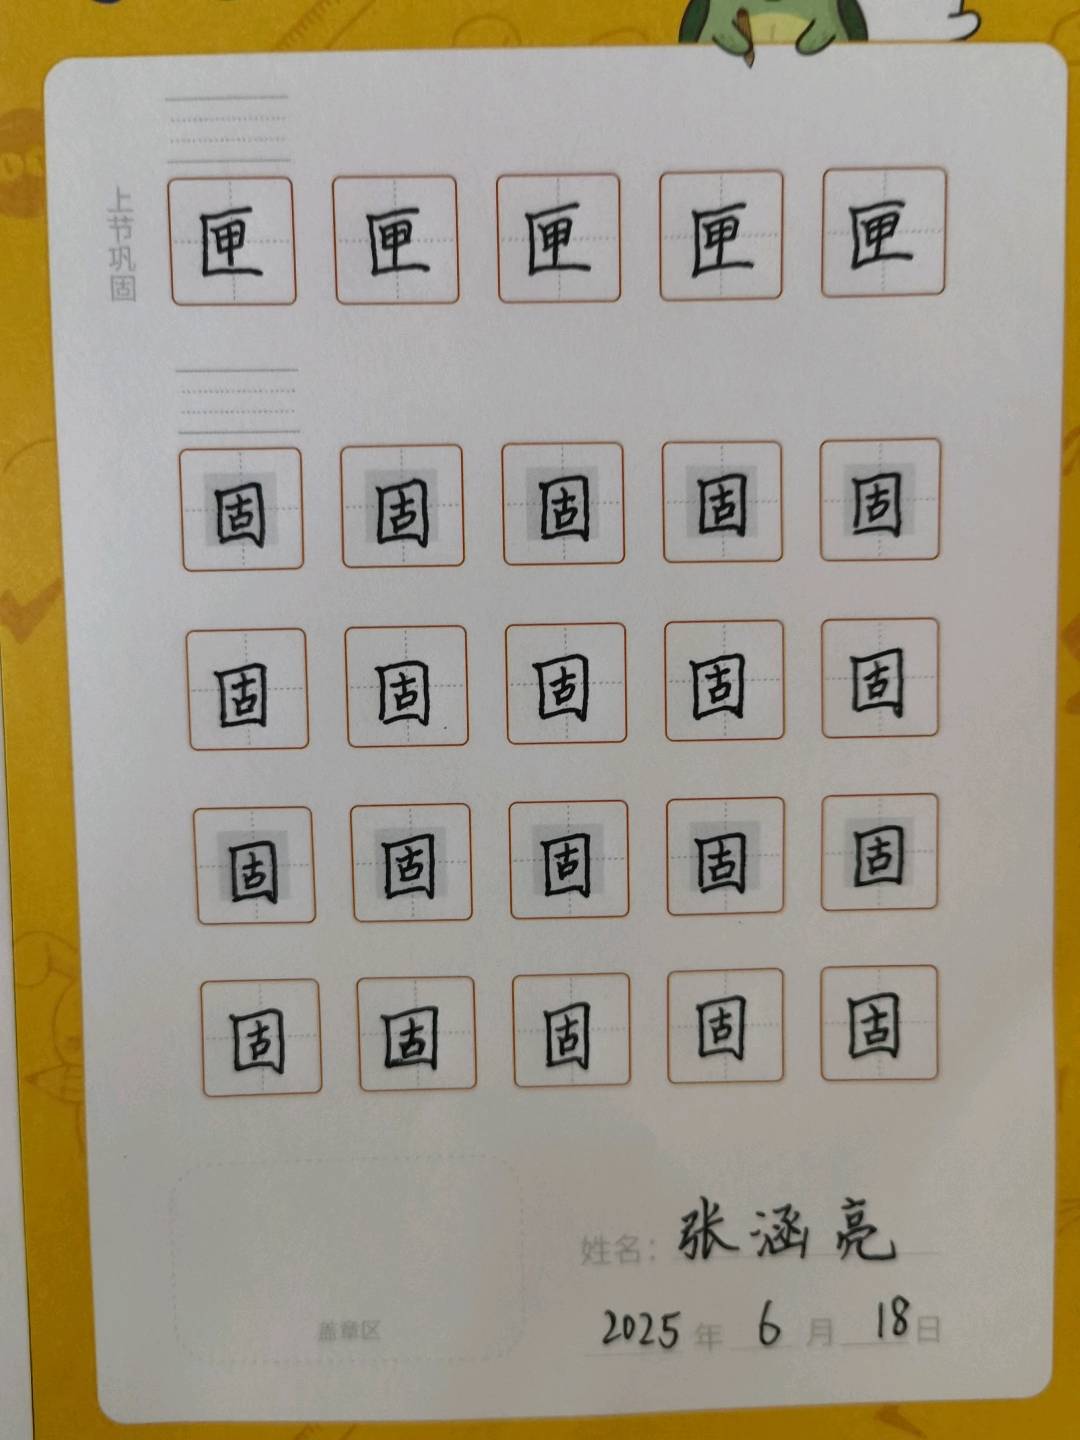 上节巩固
匣 匣 匣 匣 匣
固 固 固 固 固
固 固 固 固 固
固 固 固 固 固
固 固 固 固 固
姓名：张涵亮
盖章区
2025年 6月 18日